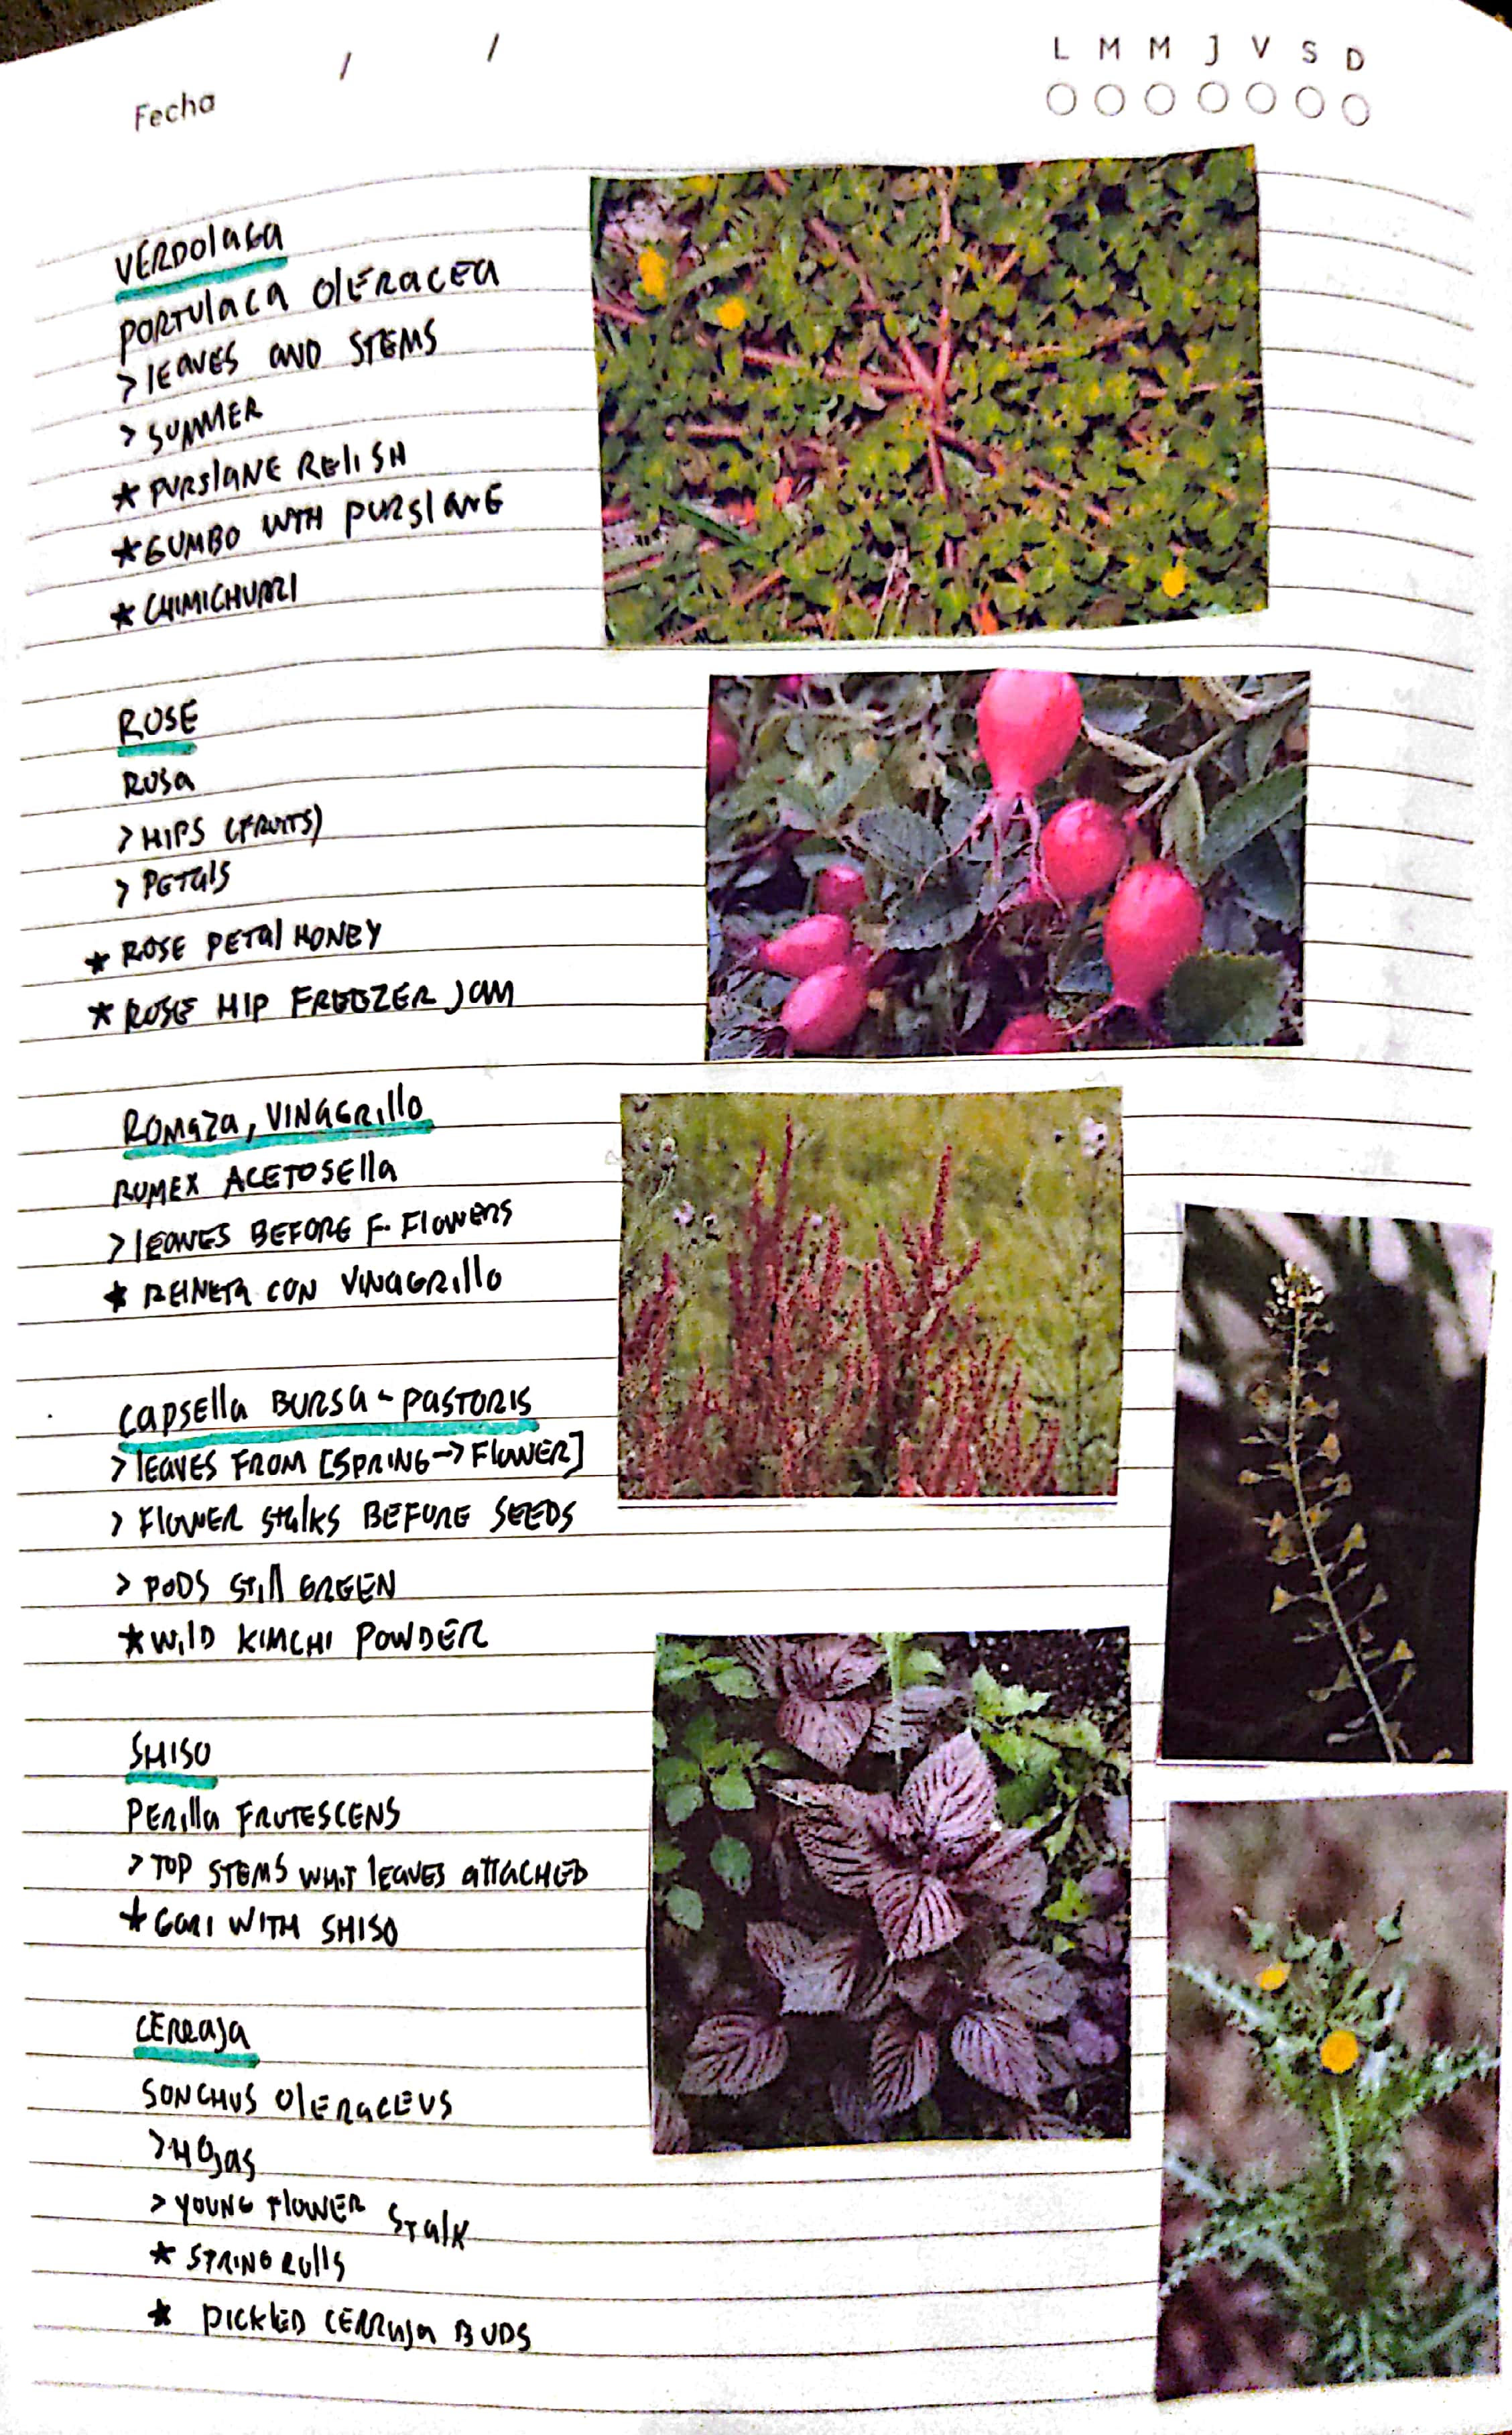 Fecha / /
L M M J V S D
VERDOLAGA
PORTULACA OLERACEA
> LEAVES AND STEMS
> SUMMER
★ PURSLANE RELISH
★ GUMBO WITH PURSLANE
★ CHIMICHURRI
ROSE
ROSA
> HIPS (FRUITS)
> PETALS
★ ROSE PETAL HONEY
★ ROSE HIP FREEZER JAM
ROMAZA, VINAGRILLO
RUMEX ACETOSELLA
> LEAVES BEFORE F. FLOWERS
★ REINETA CON VINAGRILLO
CAPSELLA BURSA - PASTORIS
> LEAVES FROM [SPRING -> FLOWER]
> FLOWER STALKS BEFORE SEEDS
> PODS STILL GREEN
★ WILD KIMCHI POWDER
SHISO
PERILLA FRUTESCENS
> TOP STEMS LEAVES ATTACHED
★ GARI WITH SHISO
CERRAJA
SONCHUS OLERACEUS
> HOJAS
> YOUNG FLOWER STALK
★ SPRING ROLLS
★ PICKLED CERRAJA BUDS